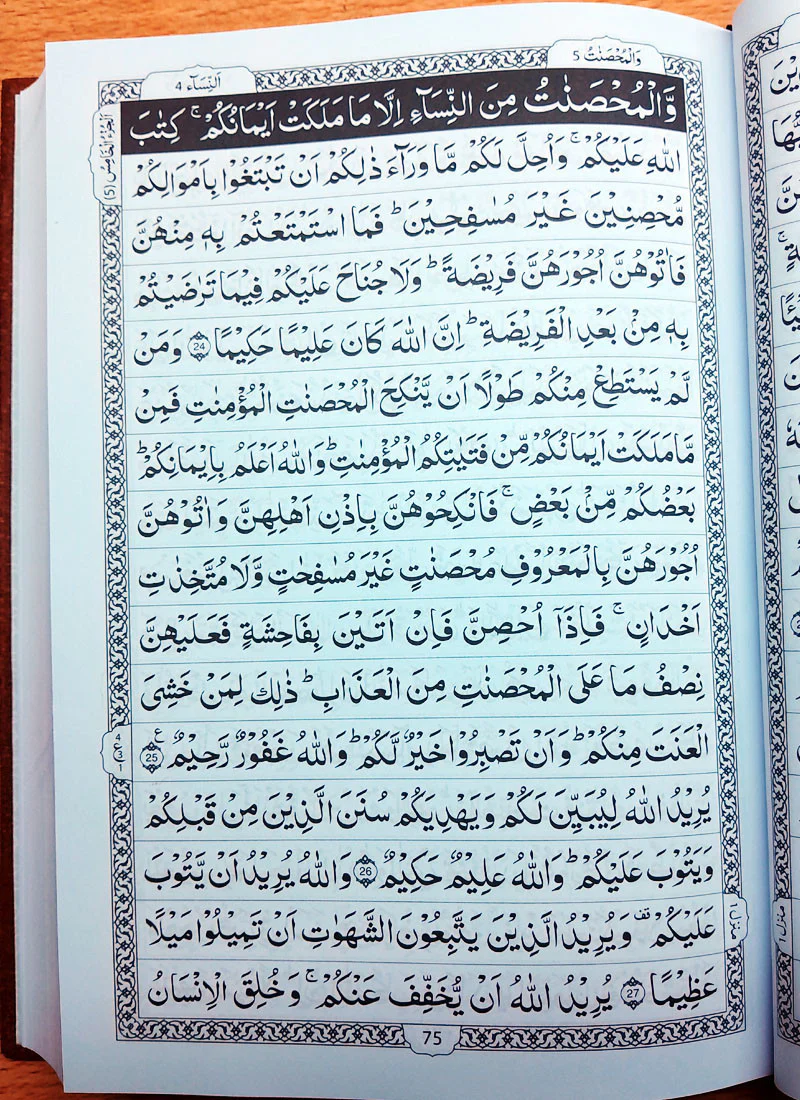 اَلنِّسَآء 4
وَالْمُحْصَنٰتُ 5
وَّالْمُحْصَنٰتُ مِنَ النِّسَآءِ اِلَّا مَا مَلَكَتْ اَيْمَانُكُمْ ۚ كِتٰبَ
اللّٰهِ عَلَيْكُمْ ۚ وَاُحِلَّ لَكُمْ مَّا وَرَآءَ ذٰلِكُمْ اَنْ تَبْتَغُوْا بِاَمْوَالِكُمْ
مُّحْصِنِيْنَ غَيْرَ مُسٰفِحِيْنَ ؕ فَمَا اسْتَمْتَعْتُمْ بِهٖ مِنْهُنَّ
فَاٰتُوْهُنَّ اُجُوْرَهُنَّ فَرِيْضَةً ؕ وَلَا جُنَاحَ عَلَيْكُمْ فِيْمَا تَرٰضَيْتُمْ
بِهٖ مِنْۢ بَعْدِ الْفَرِيْضَةِ ؕ اِنَّ اللّٰهَ كَانَ عَلِيْمًا حَكِيْمًا 24 وَمَنْ
لَّمْ يَسْتَطِعْ مِنْكُمْ طَوْلًا اَنْ يَّنْكِحَ الْمُحْصَنٰتِ الْمُؤْمِنٰتِ فَمِنْ
مَّا مَلَكَتْ اَيْمَانُكُمْ مِّنْ فَتَيٰتِكُمُ الْمُؤْمِنٰتِ ؕ وَاللّٰهُ اَعْلَمُ بِاِيْمَانِكُمْ ؕ
بَعْضُكُمْ مِّنْۢ بَعْضٍ ۚ فَانْكِحُوْهُنَّ بِاِذْنِ اَهْلِهِنَّ وَاٰتُوْهُنَّ
اُجُوْرَهُنَّ بِالْمَعْرُوْفِ مُحْصَنٰتٍ غَيْرَ مُسٰفِحٰتٍ وَّلَا مُتَّخِذٰتِ
اَخْدَانٍ ۚ فَاِذَاۤ اُحْصِنَّ فَاِنْ اَتَيْنَ بِفَاحِشَةٍ فَعَلَيْهِنَّ
نِصْفُ مَا عَلَى الْمُحْصَنٰتِ مِنَ الْعَذَابِ ؕ ذٰلِكَ لِمَنْ خَشِىَ
الْعَنَتَ مِنْكُمْ ؕ وَاَنْ تَصْبِرُوْا خَيْرٌ لَّكُمْ ؕ وَاللّٰهُ غَفُوْرٌ رَّحِيْمٌ 25
يُرِيْدُ اللّٰهُ لِيُبَيِّنَ لَكُمْ وَيَهْدِيَكُمْ سُنَنَ الَّذِيْنَ مِنْ قَبْلِكُمْ
وَيَتُوْبَ عَلَيْكُمْ ؕ وَاللّٰهُ عَلِيْمٌ حَكِيْمٌ 26 وَاللّٰهُ يُرِيْدُ اَنْ يَّتُوْبَ
عَلَيْكُمْ قف وَيُرِيْدُ الَّذِيْنَ يَتَّبِعُوْنَ الشَّهَوٰتِ اَنْ تَمِيْلُوْا مَيْلًا
عَظِيْمًا 27 يُرِيْدُ اللّٰهُ اَنْ يُّخَفِّفَ عَنْكُمْ ۚ وَخُلِقَ الْاِنْسَانُ
الجزء الخامس (5)
4 ع 3 1
منزل ١
75